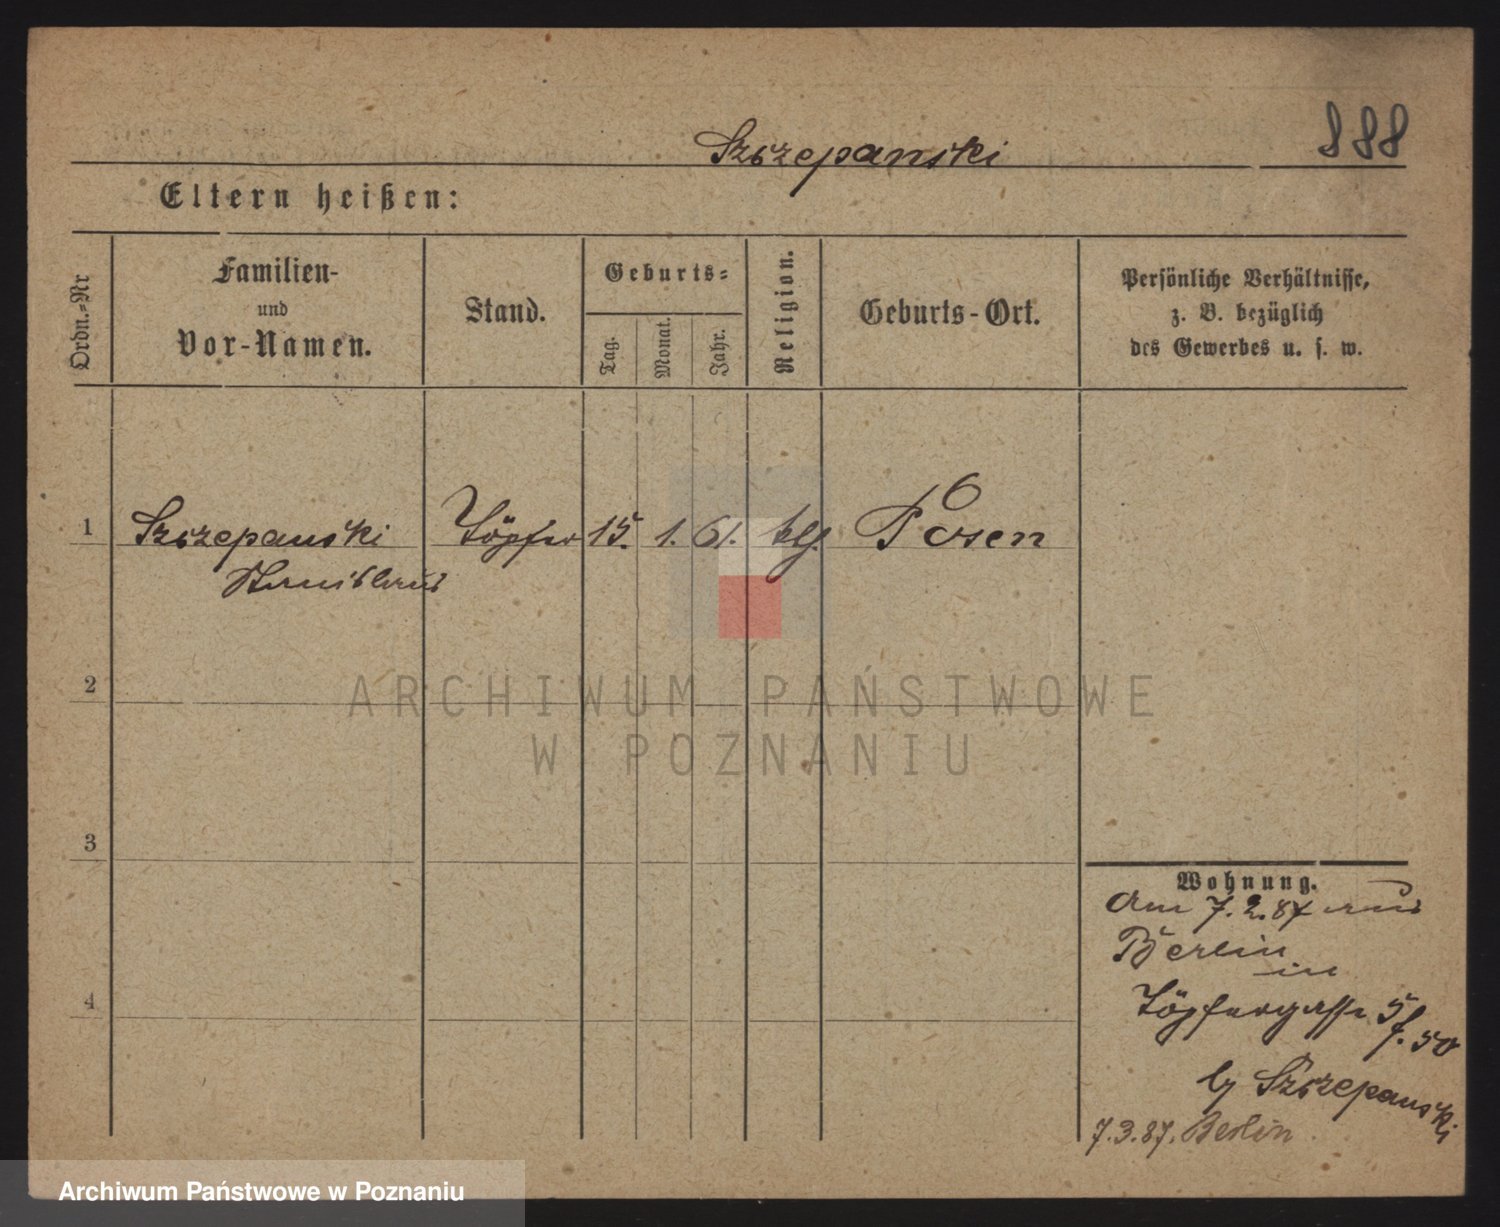 888
Szczepanski
Eltern heißen:
Ordn.-Nr
Familien-
und
Vor-Namen.
Stand.
Geburts-
Tag.
Monat.
Jahr.
Religion.
Geburts-Ort.
Persönliche Verhältnisse,
z. B. bezüglich
des Gewerbes u. s. w.
1 Szczepanski Töpfer 15. 1. 61. klg. Posen
Stanislaus
2
ARCHIWUM PAŃSTWOWE
W POZNANIU
3
Wohnung.
Am 7.2.87 aus
Berlin
in
4
Töpfergasse 5
f. 50
by Szczepanski
7.3.87. Berlin
Archiwum Państwowe w Poznaniu